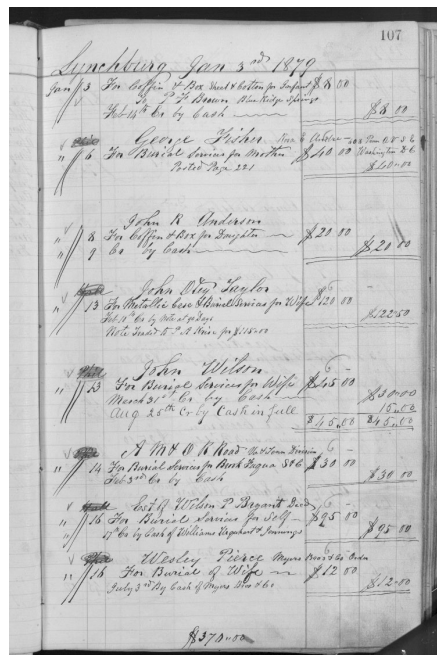 107
Lynchburg Jan 3rd 1879
Jan 3 For Coffin & Box Sheet & Cotton for Infant $8 00
To P. F. Brown Blue Ridge Springs
Feb 14th Cr by Cash $8 00
George Fisher
" 6 For Burial Services for Mother $40 00 Washington D C
Posted Page 221 $40.00
John R Anderson
" 8 For Coffin & Box for Daughter $20 00
" 9 Cr by Cash $20 00
John Otey Taylor
" 13 For Metallic Case & Burial Services for Wife $120 00
Feb 18th Cr by Note at 90 Days $122 50
Note Traded to
John Wilson
" 13 For Burial Services for Wife $45 00
March 31st Cr by Cash $30.00
Aug 25th Cr by Cash in full 15.00
$45.00 $45.00
A M & O R Road
" 14 For Burial Services for Buck $30 00
Feb 3rd Cr by Cash $30 00
Est of Wilson P Bryant Decd
" 16 For Burial Services for Self $95 00
17th Cr by Cash of Williams Urquhart & Jennings $95 00
Wesley Pierce Myers Bros & Co Order
" 16 For Burial of Wife $12 00
July 3rd By Cash of Myers Bros & Co $12.00
$370.00